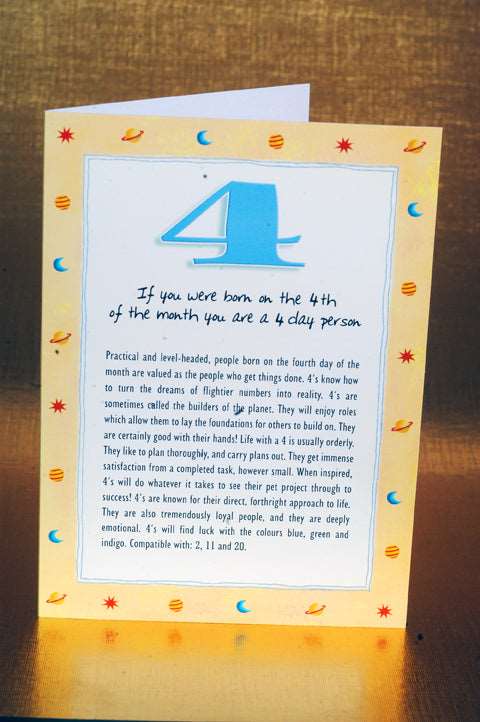 4
If you were born on the 4th
of the month you are a 4 day person
Practical and level-headed, people born on the fourth day of the
month are valued as the people who get things done. 4's know how
to turn the dreams of flightier numbers into reality. 4's are
sometimes called the builders of the planet. They will enjoy roles
which allow them to lay the foundations for others to build on. They
are certainly good with their hands! Life with a 4 is usually orderly.
They like to plan thoroughly, and carry plans out. They get immense
satisfaction from a completed task, however small. When inspired,
4's will do whatever it takes to see their pet project through to
success! 4's are known for their direct, forthright approach to life.
They are also tremendously loyal people, and they are deeply
emotional. 4's will find luck with the colours blue, green and
indigo. Compatible with: 2, 11 and 20.